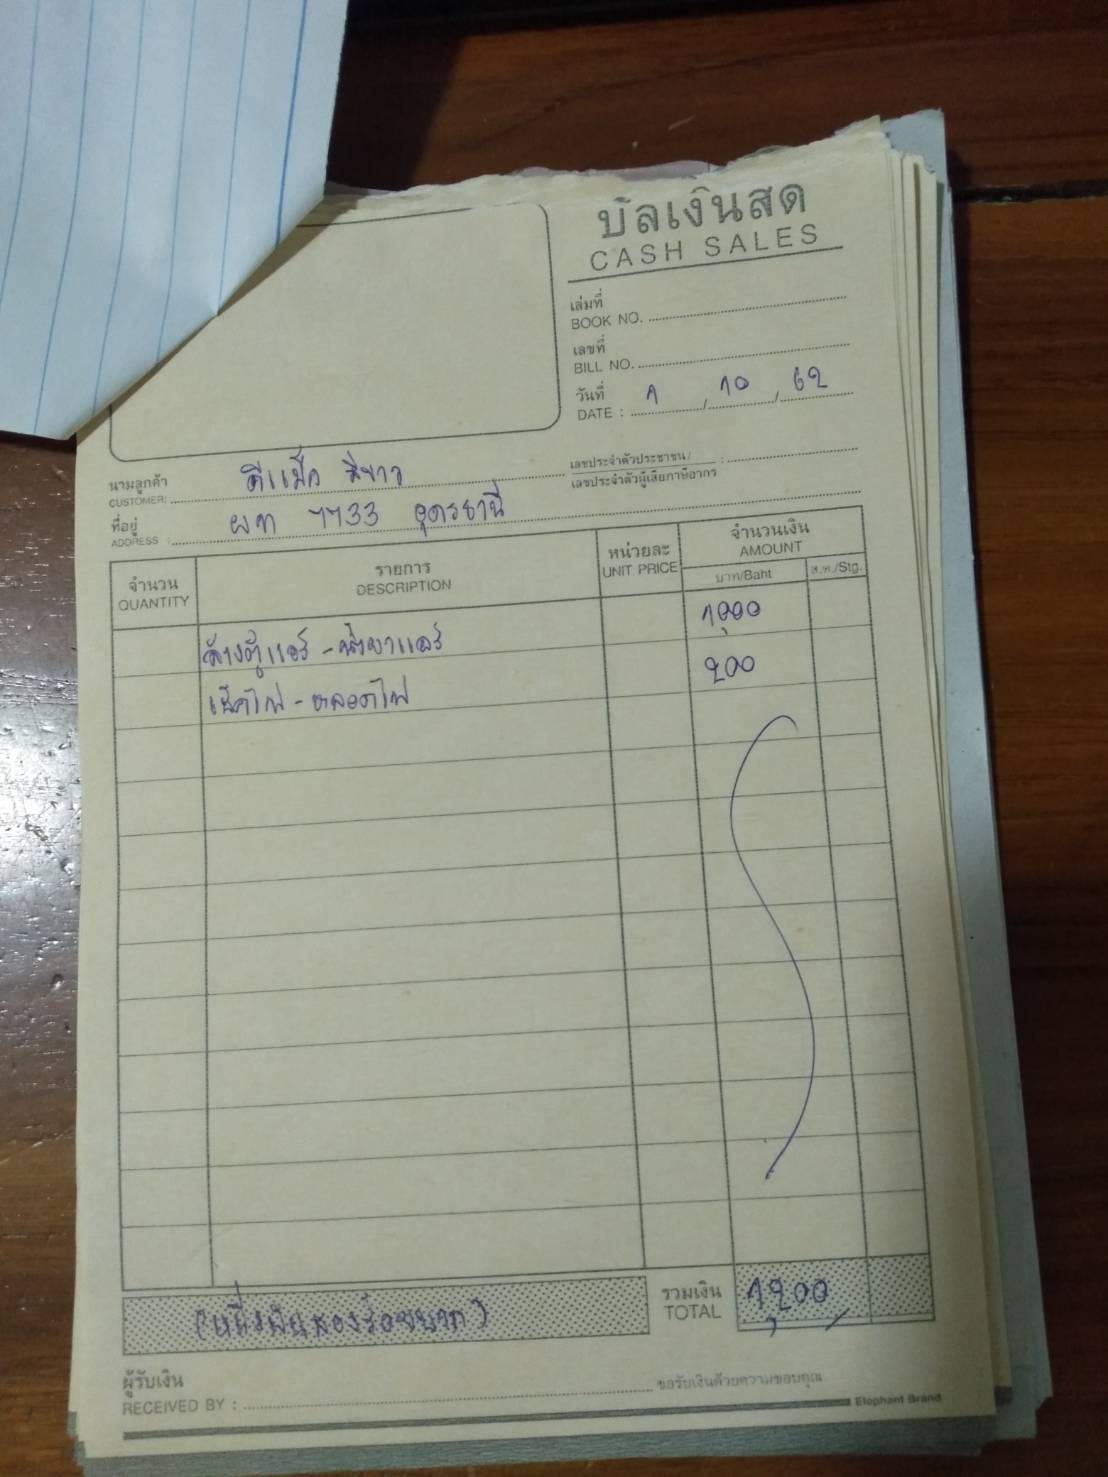 บิลเงินสด
CASH SALES
เล่มที่
BOOK NO.
เลขที่
BILL NO.
วันที่
DATE : 1 / 10 / 62
นามลูกค้า ดีแม็ก สีขาว
CUSTOMER:
เลขประจำตัวประชาชน / :
เลขประจำตัวผู้เสียภาษีอากร
ที่อยู่ ผท 7733 อุดรธานี
ADDRESS :
จำนวน
QUANTITY
รายการ
DESCRIPTION
หน่วยละ
UNIT PRICE
จำนวนเงิน
AMOUNT
บาท/Baht ส.ต./Stg.
ล้างตู้แอร์ - น้ำยาแอร์ 1000
เช็คไฟ - หลอดไฟ 200
(หนึ่งพันสองร้อยบาท)
รวมเงิน
TOTAL 1,200
ผู้รับเงิน
RECEIVED BY :
ขอรับเงินด้วยความขอบคุณ
Elephant Brand